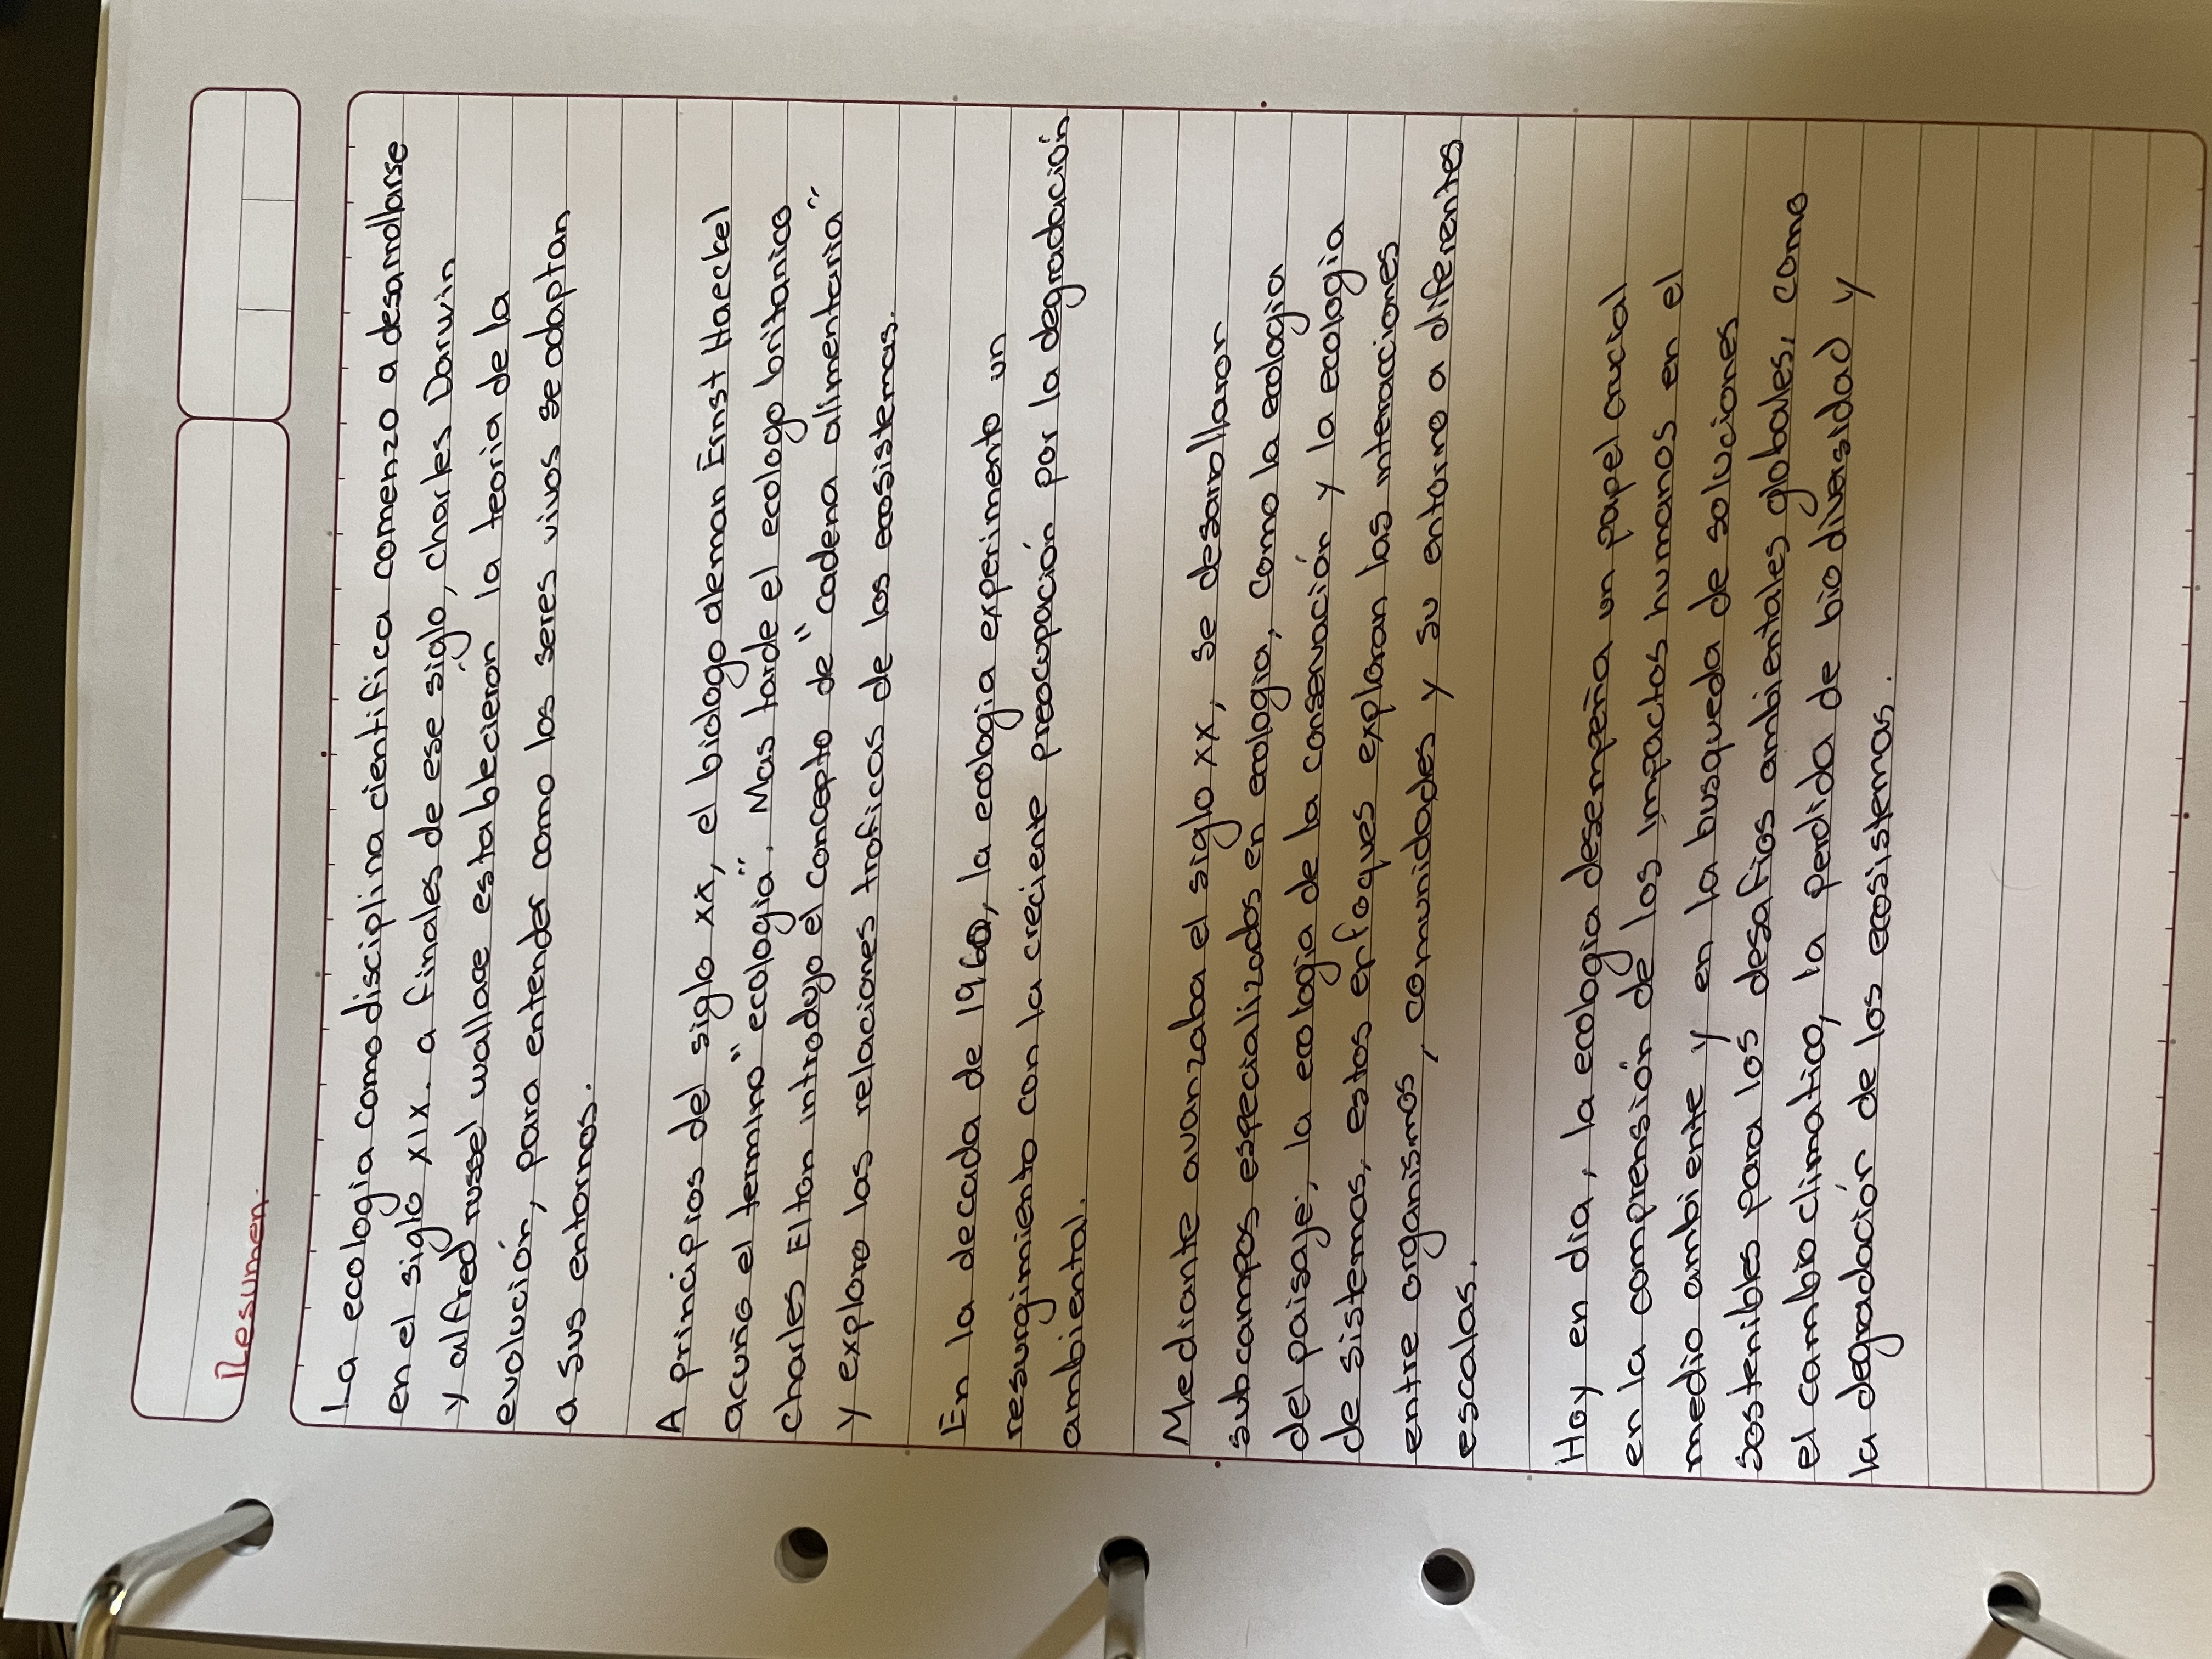 Resumen.
La ecologia como disciplina cientifica comenzo a desarrollarse
en el siglo XIX. a finales de ese siglo, charles Darwin
y alfred russel wallace establecieron la teoria de la
evolución, para entender como los seres vivos se adaptan
a sus entornos.
A principios del siglo XX, el biologo aleman Ernst Haeckel
acuño el termino "ecologia". Mas tarde el ecologo britanico
charles Elton introdujo el concepto de "cadena alimentaria"
y exploro las relaciones troficas de los ecosistemas.
En la decada de 1960, la ecologia experimento un
resurgimiento con la creciente preocupación por la degradación
ambiental.
Mediante avanzaba el siglo XX, se desarollaron
subcampos especializados en ecologia, como la ecologia
del paisaje, la ecologia de la conservación y la ecologia
de sistemas, estos enfoques exploran las interacciones
entre organismos, comunidades y su entorno a diferentes
escalas.
Hoy en dia, la ecologia desempeña un papel crucial
en la comprensión de los impactos humanos en el
medio ambiente y en la busqueda de soluciones
sostenibles para los desafios ambientales globales, como
el cambio climatico, la perdida de biodiversidad y
la degradación de los ecosistemas.